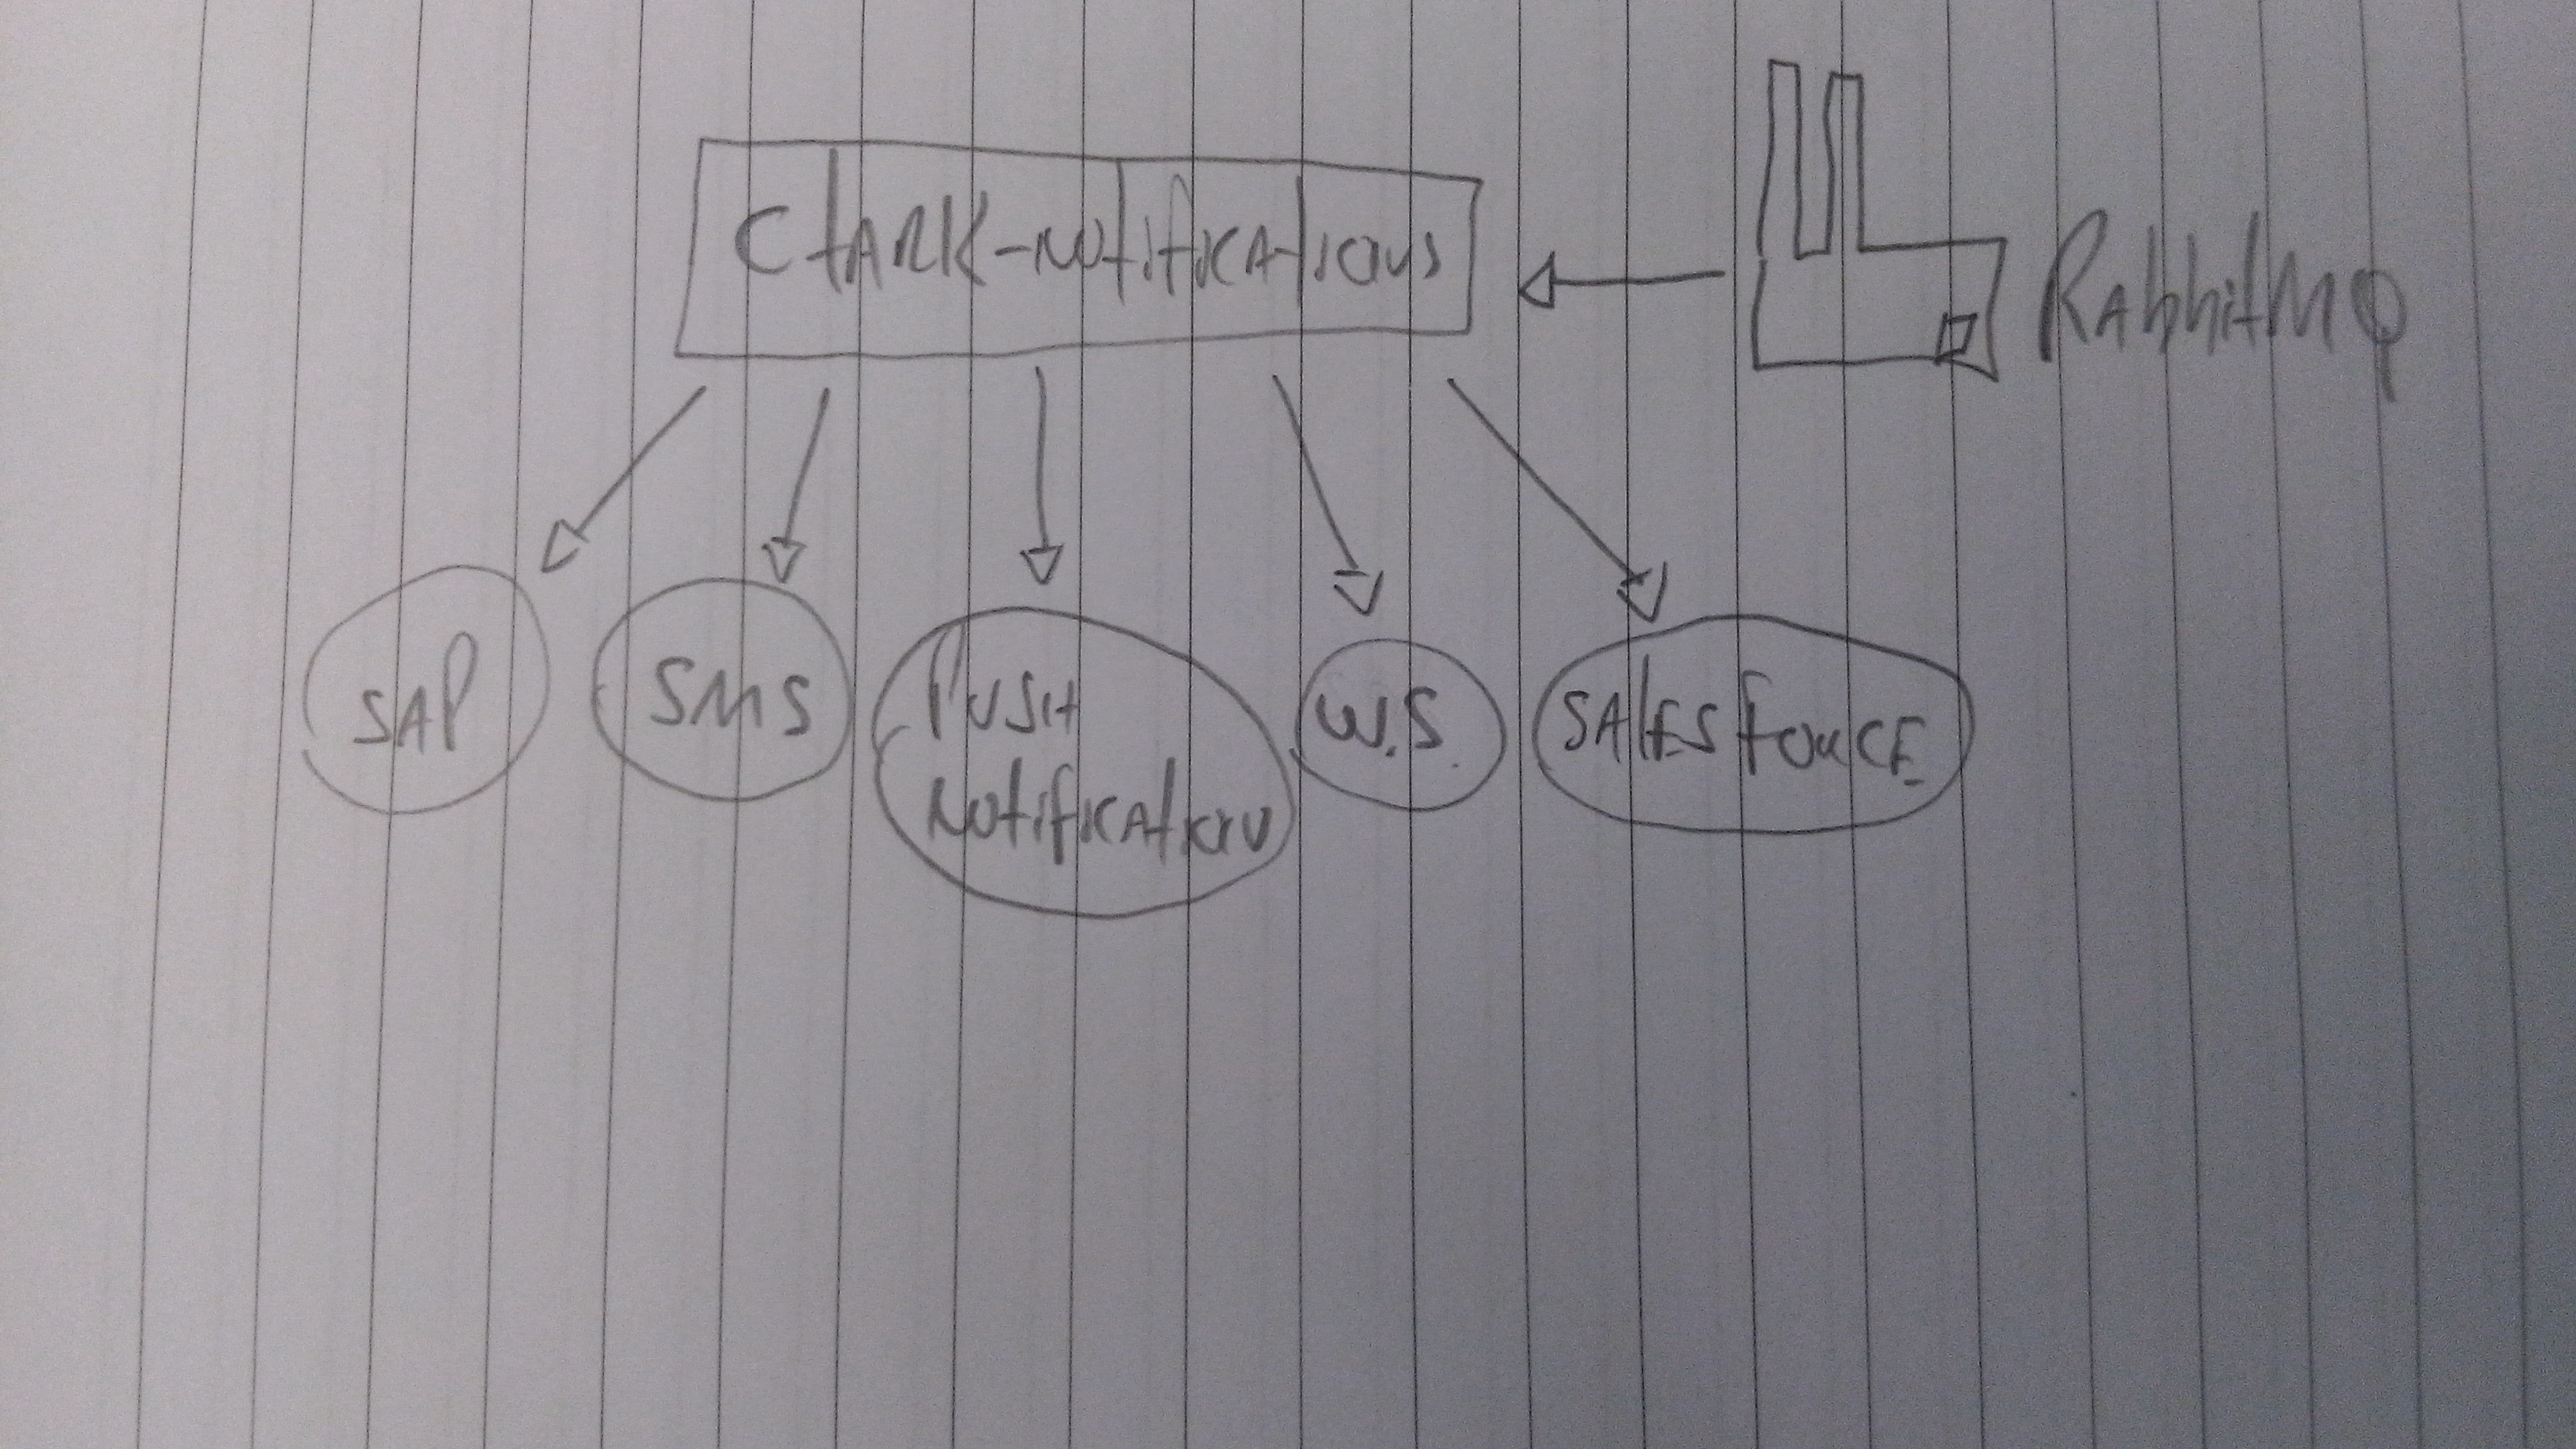 CtARK-Notifications
RabbitMQ
SAP
SMS
PUSH
Notification
W.S.
SALESFORCE